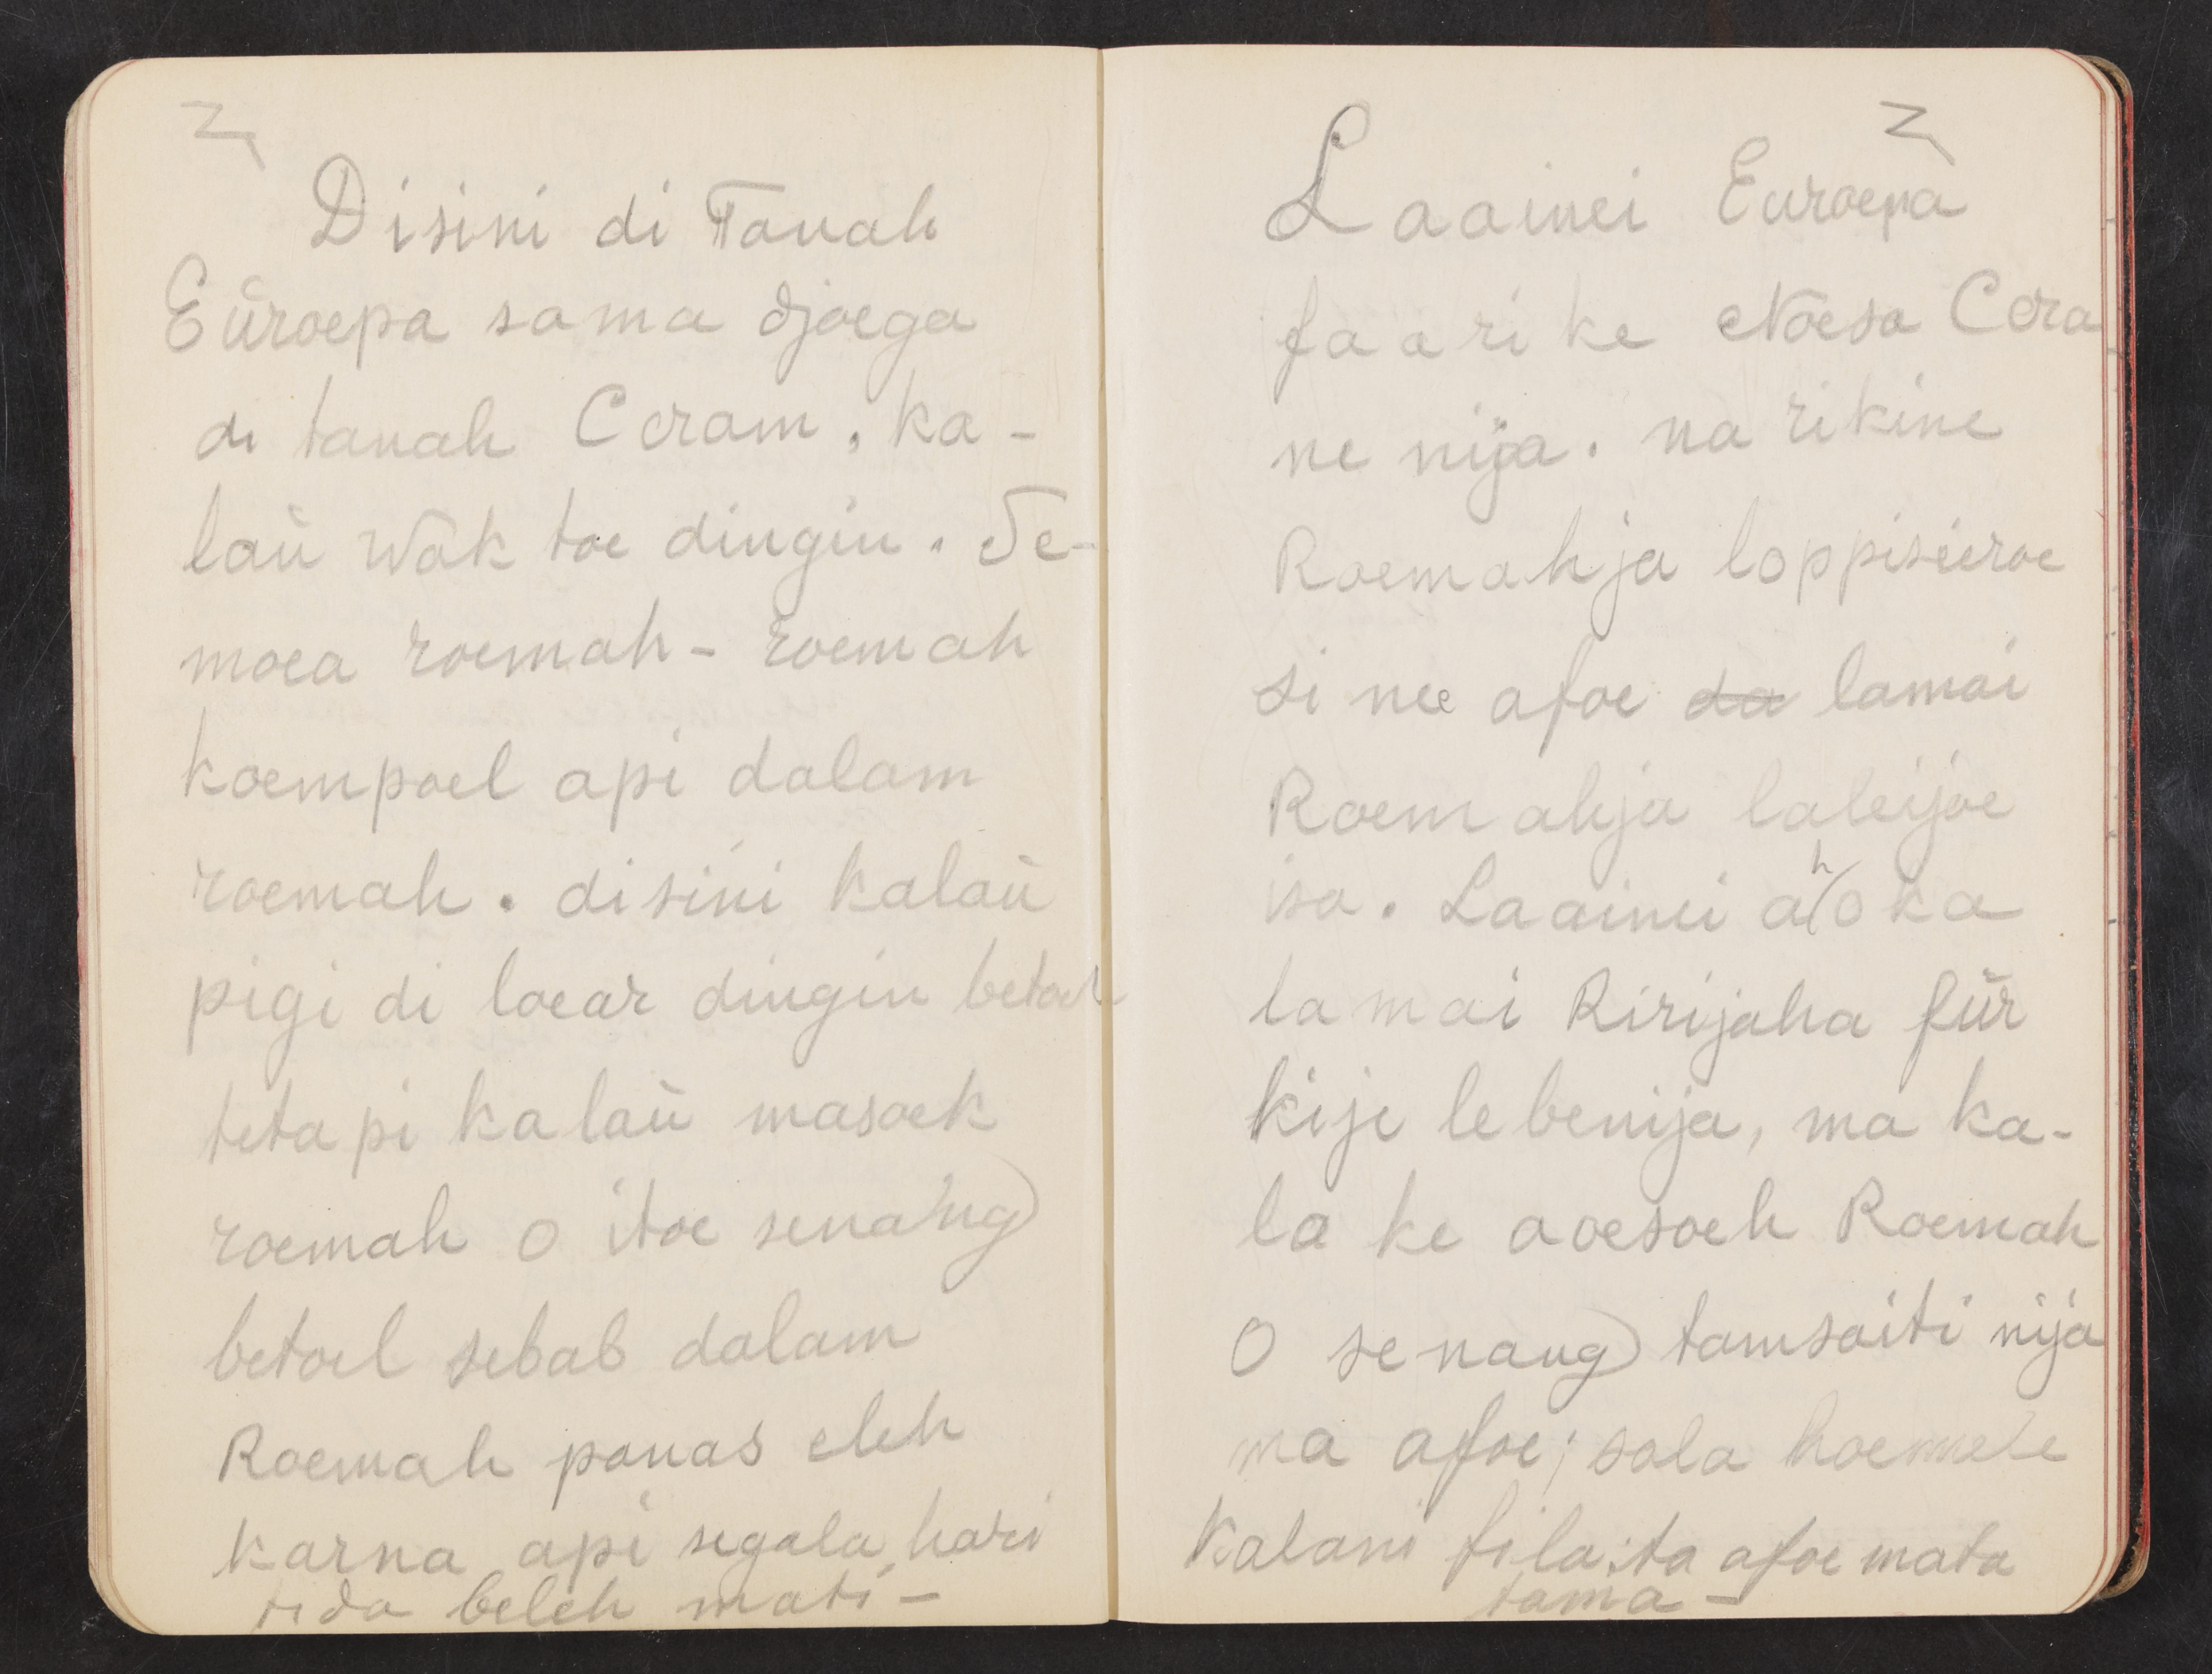 Disini di Tanah
Eŭroepa sama djoega
di tanah Ceram, ka-
laŭ wak toe dingin. Se-
moea roemah - roemah
koempoel api dalam
roemah. disini kalaŭ
pigi di loear dingin betoel
tetapi kalaŭ masoek
roemah o itoe senang
betoel sebab dalam
Roemah panas oleh
karna api segala hari
tida beleh mati -
Laainei Euroepa
faarike Noesa Cera
ne nija. na rikine
Roemahja loppisieroe
si nee afoe da lamai
Roemahja laleijoe
isa. Laainei ahoka
lamai Ririjaha fŭr
kije lebenija, ma ka-
la ke aoesoeh Roemah
O senang tamsaiti nija
ma afoe; sala hoemele
Kalani fila ita afoe mata
tama -